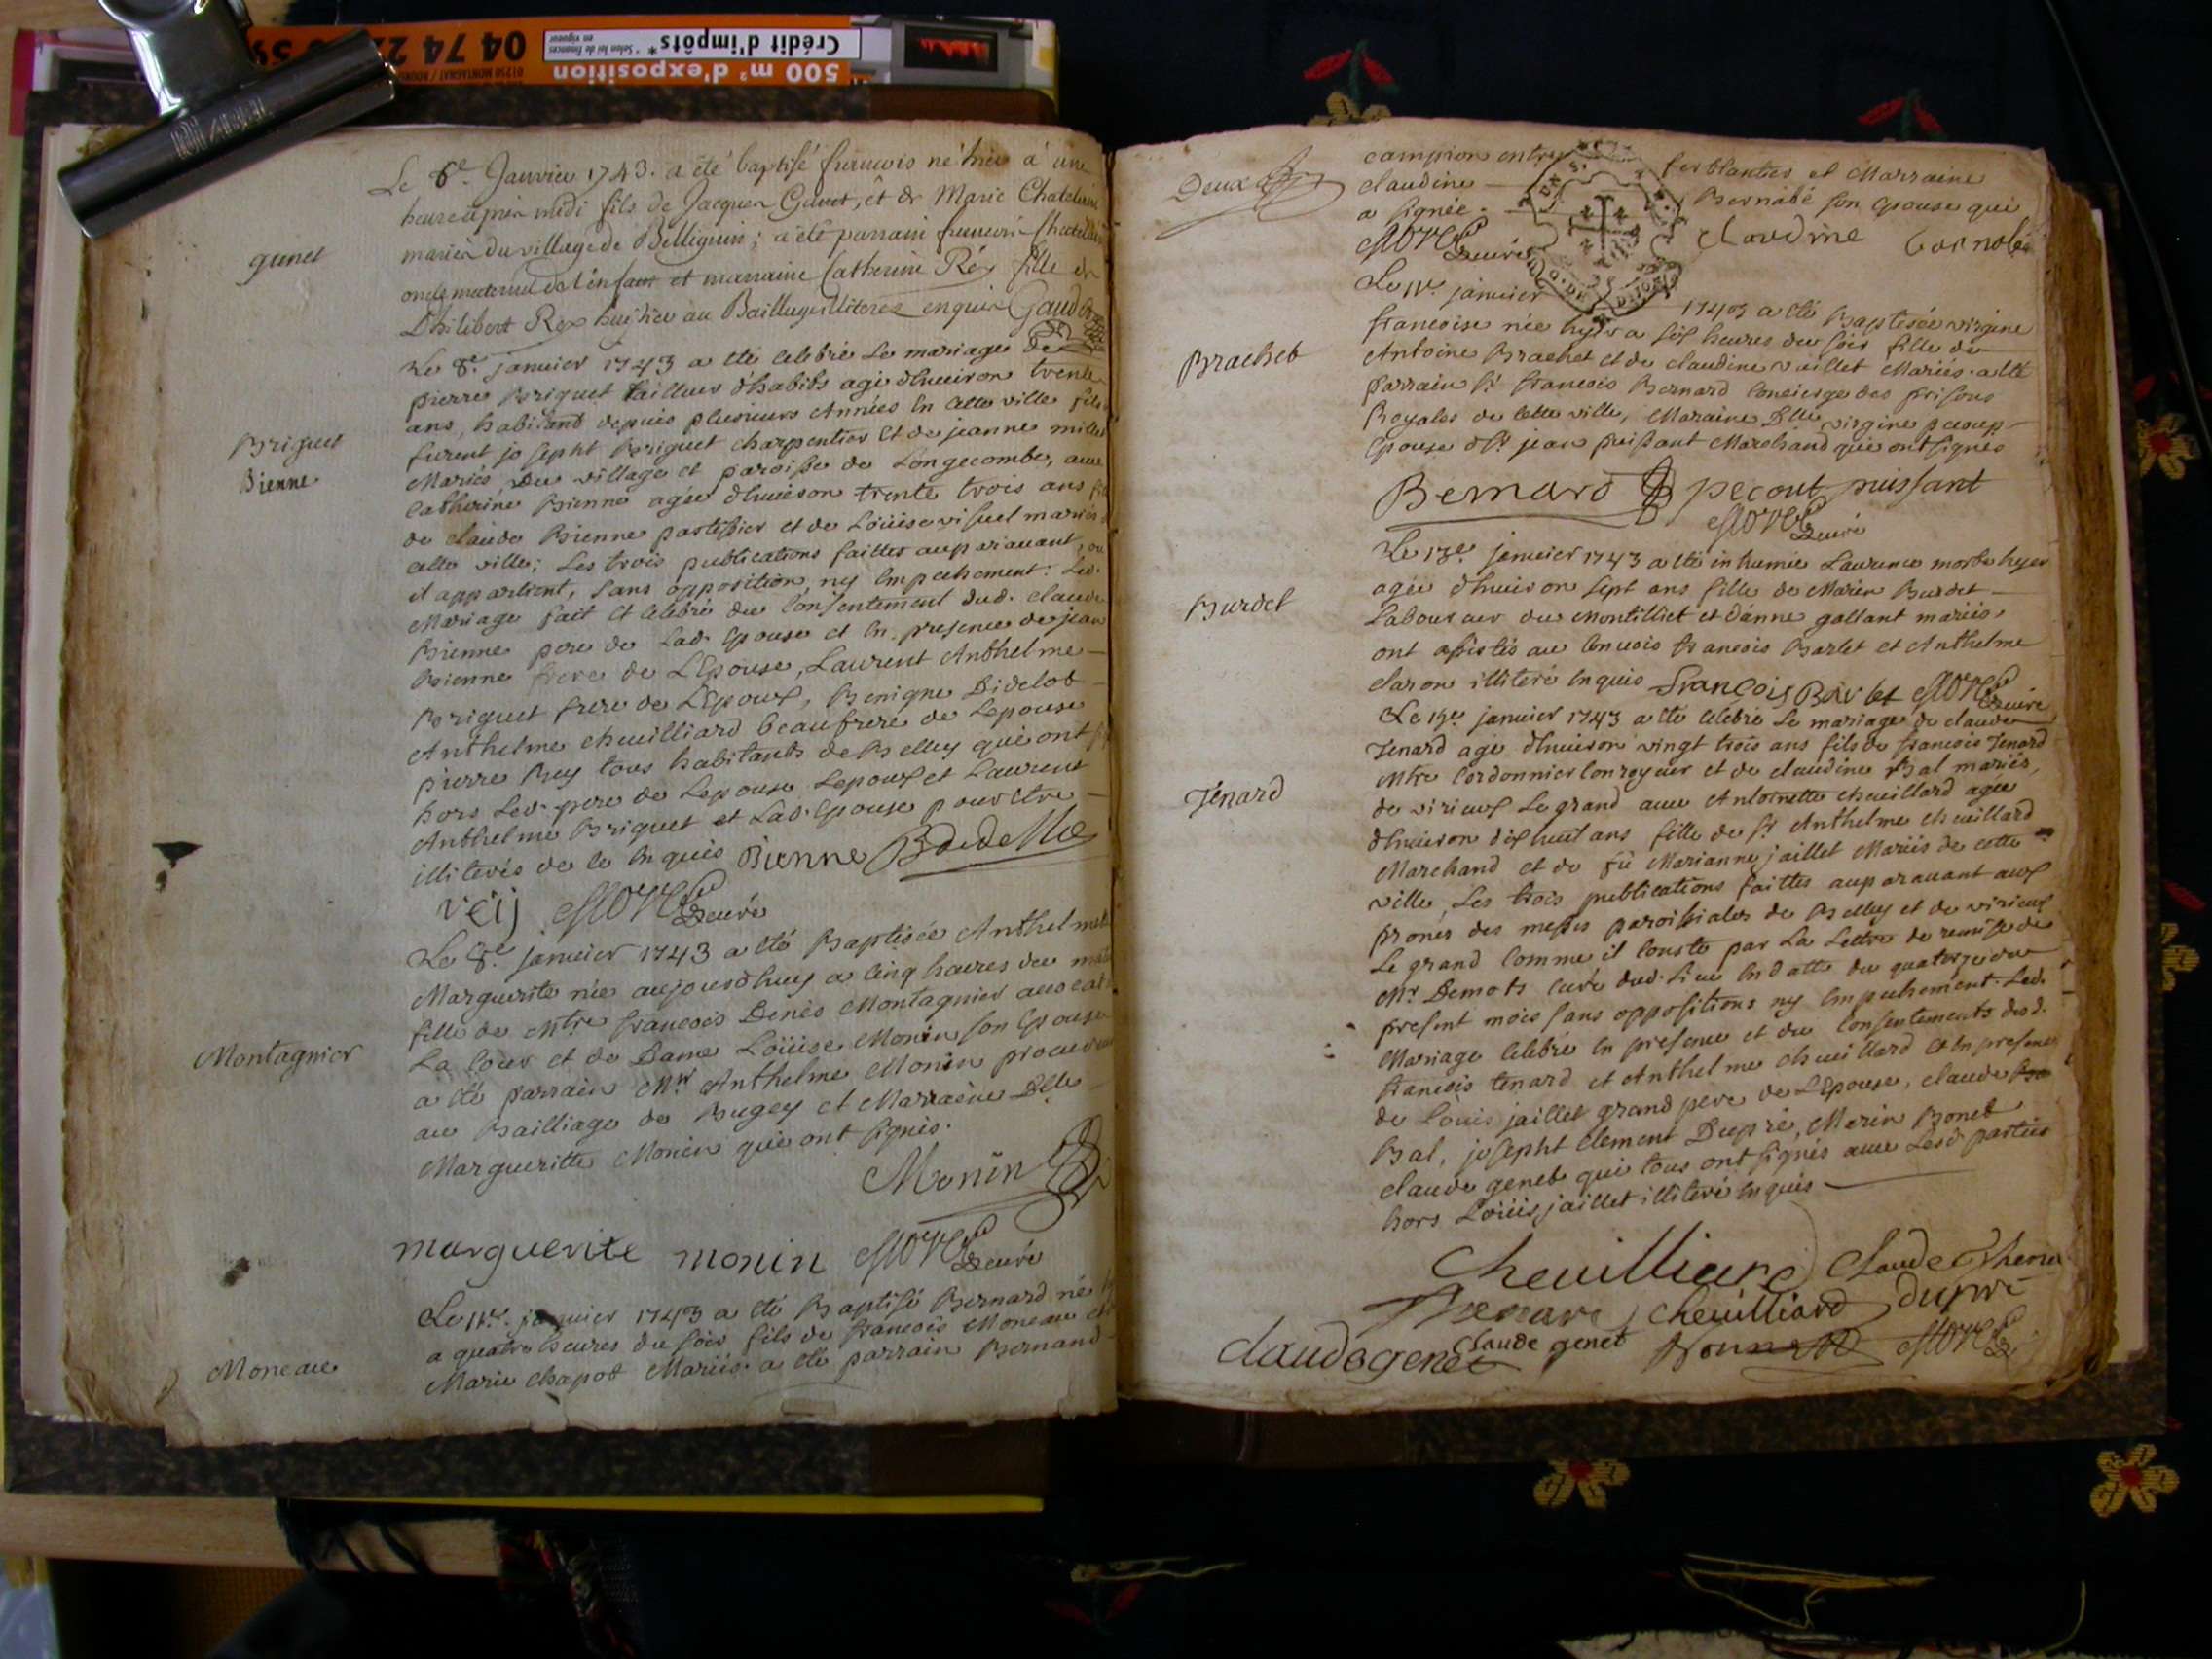 04 74 2
Crédit d'impôts*
* Selon loi de finances
en vigueur
500 m² d'exposition
Le 6e Janvier 1743. a été baptisé francois né hier à une
heure après midi fils de Jacques Gunet, et de Marie Chatelain
mariés du village de Belligneu; a été parrain francois Chatelain
oncle maternel de l'enfant et marraine Catherine Réy fille de
Philibert Rey huissier au Bailliage illiteres enquis
gunet
Le 8e janvier 1743 a été celebré le mariage de
pierre Briquet tailleur d'habits agé d'huiron trente
ans, habitant depuis plusieurs Années en cette ville fils
furent josepht Briquet charpentier et de jeanne millet
Mariés du village et paroisse de Longecombe, avec
Catherine Bienne agée d'huiron trente trois ans
de claude Bienne pastissier et de Loüise visuel mariés
cette ville; Les trois publications faittes auparavant, ou
il appartient, sans opposition ny Empechement: Led.
Mariage fait et celebré du Consentement dud. claude
Bienne pere de Lad. Epouse et en presence de jean
Bienne frere de L'Epouse, Laurent Anthelme
Briquet frere de L'Epoux, Benigne Didelot
Anthelme cheuilliard beaufrere de Lepouse
pierre Rey tous habitants de Belley qui ont
hors Led. pere de Lepouse Lepoux et Laurent
Anthelme Briquet et Lad. Epouse pour etre
illiterés de ce Enquis Bienne
Briquet
Bienne
Le 8e janvier 1743 a été Baptisée Anthelmette
Margueritte née aujourdhuy a cinq heures du matin
fille de Mtre francois Denis Montagnier auocat
La Cour et de Dame Loüise Monin son Epouse
a été parrain Mr Anthelme Monin procureur
au Bailliage de Bugey et Marraine Dlle
Margueritte Monin qui ont signés.
Monin
marguerite monin curé
Montagnier
Le 11e janvier 1743 a été Baptisé Bernard né
a quatre heures du soir fils de francois Moneau et
Marie chapot Mariés. a été parrain Bernard
Moneau
Deux
campion entre ferblantier et Marraine
claudine Bernabé son epouse qui
a signée. claudine bernabe
curé
Le 11e janvier 1743 a été Baptisée virgine
francoise née hyer a six heures du soir fille de
Antoine Brachet et de claudine vaillet Mariés. a été
parrain Sr francois Bernard concierge des prisons
Royales de cette ville, Maraine Dlle virgine pecoup
Epouse d Sr jean puissant Marchand qui ont signés
Bernard pecout puissant
curé
Brachet
Le 13e janvier 1743 a été inhumée Laurence morte hyer
agée d'huiron sept ans fille de Marin Burdet
Laboureur du Montilliet et d'anne gallant mariés,
ont assistés au Conuois francois Barlet et Anthelme
claron illiteré Enquis francois Barlet curé
Burdet
Le 19e janvier 1743 a été celebré Le mariage de claude
Tenard agé d'huiron vingt trois ans fils de francois Tenard
Mtre Cordonnier Conroyeur et de claudine Bal mariés,
de virieux Le grand auec Antoinette cheuillard agée
d'huiron dix huit ans fille de Sr Anthelme cheuillard
Marchand et de fü Marianne jaillet Mariés de cette
ville, Les trois publications faittes auparauant aux
prones des messes paroissiales de Belley et de virieux
Le grand Comme il Conste par La Lettre de remise de
Mr Demots Curé dud. Lieu en datte du quatorze du
present mois sans oppositions ny Empechement. Led.
Mariage celebré en presence et du Consentements desd.
francois tenard et Anthelme cheuillard et en presence
de Louis jaillet grand pere de L'Epouse, claude
Bal, josepht Clement Dupré, Marin Bonet
claude genet qui tous ont signés auec Lesd. parties
hors Loüis jaillet illiteré Enquis
Tenard
Cheuilliard Claude Thenard
Thenard Cheuilliard dupré
claude genet claude genet